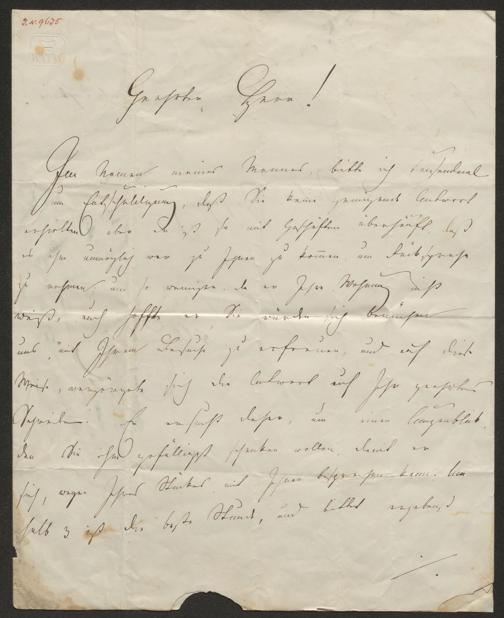 J.N. 9635
Geehrter Herr!
Im Namen meines Mannes, bitte ich tausendmal
um Entschuldigung, daß Sie keine genügende Antwort
erhielten aber er ist so mit Geschäften überhäuft daß
es ihm unmöglich war zu Ihnen zu kommen um Rücksprache
zu nehmen um so weniger da er Ihre Wohnung nicht
weiß, auch hoffte er, Sie würden sich bemühen
uns mit Ihrem Besuche zu erfreuen, und auf diese
Weise, verzögerte sich die Antwort auf Ihr geehrtes
Schreiben. Er ersucht daher, um einen Augenblick,
den Sie ihm gefälligst schenken wollen, damit er
sich, wegen Ihres Stückes mit Ihnen besprechen kann. Um
halb 3 ist die beste Stunde, und bittet ergebenst